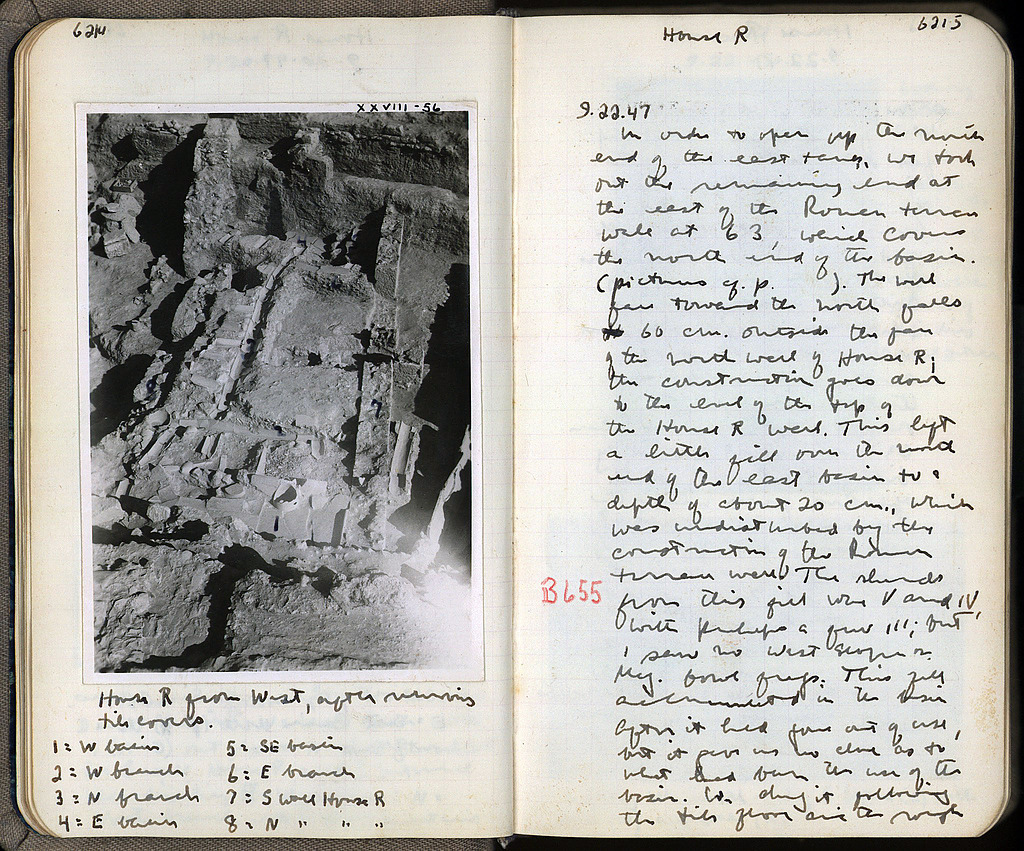 6214
XXVIII-56
House R from West, after removing
tile covers.
1 = W basin
2 = W branch
3 = N branch
4 = E basin
5 = SE basin
6 = E branch
7 = S wall House R
8 = N " " "
House R
6215
9.22.47
In order to open up the north
end of the east , we took
out the remaining end at
the east of the Roman terrace
wall at 63, which covers
the north end of the basin.
(pictures cf. p. ). The wall
face toward the north falls
60 cm. outside the face
of the north wall of House R;
the construction goes down
to the level of the top of
the House R wall. This left
a little fill over the north
end of the east basin to a
depth of about 20 cm., which
was undisturbed by the
construction of the Roman
terrace wall. The sherds
B655
from this fill were V and IV,
with perhaps a few III; but
I saw no West Slope or
Meg. bowl frags. This fill
accumulated in the basin
after it had gone out of use,
but it gave us no clue as to
what had been the use of the
basin. We dug it following
the tile floor and the rough